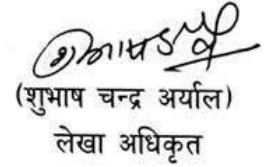 (शुभाष चन्द्र अर्याल)
लेखा अधिकृत